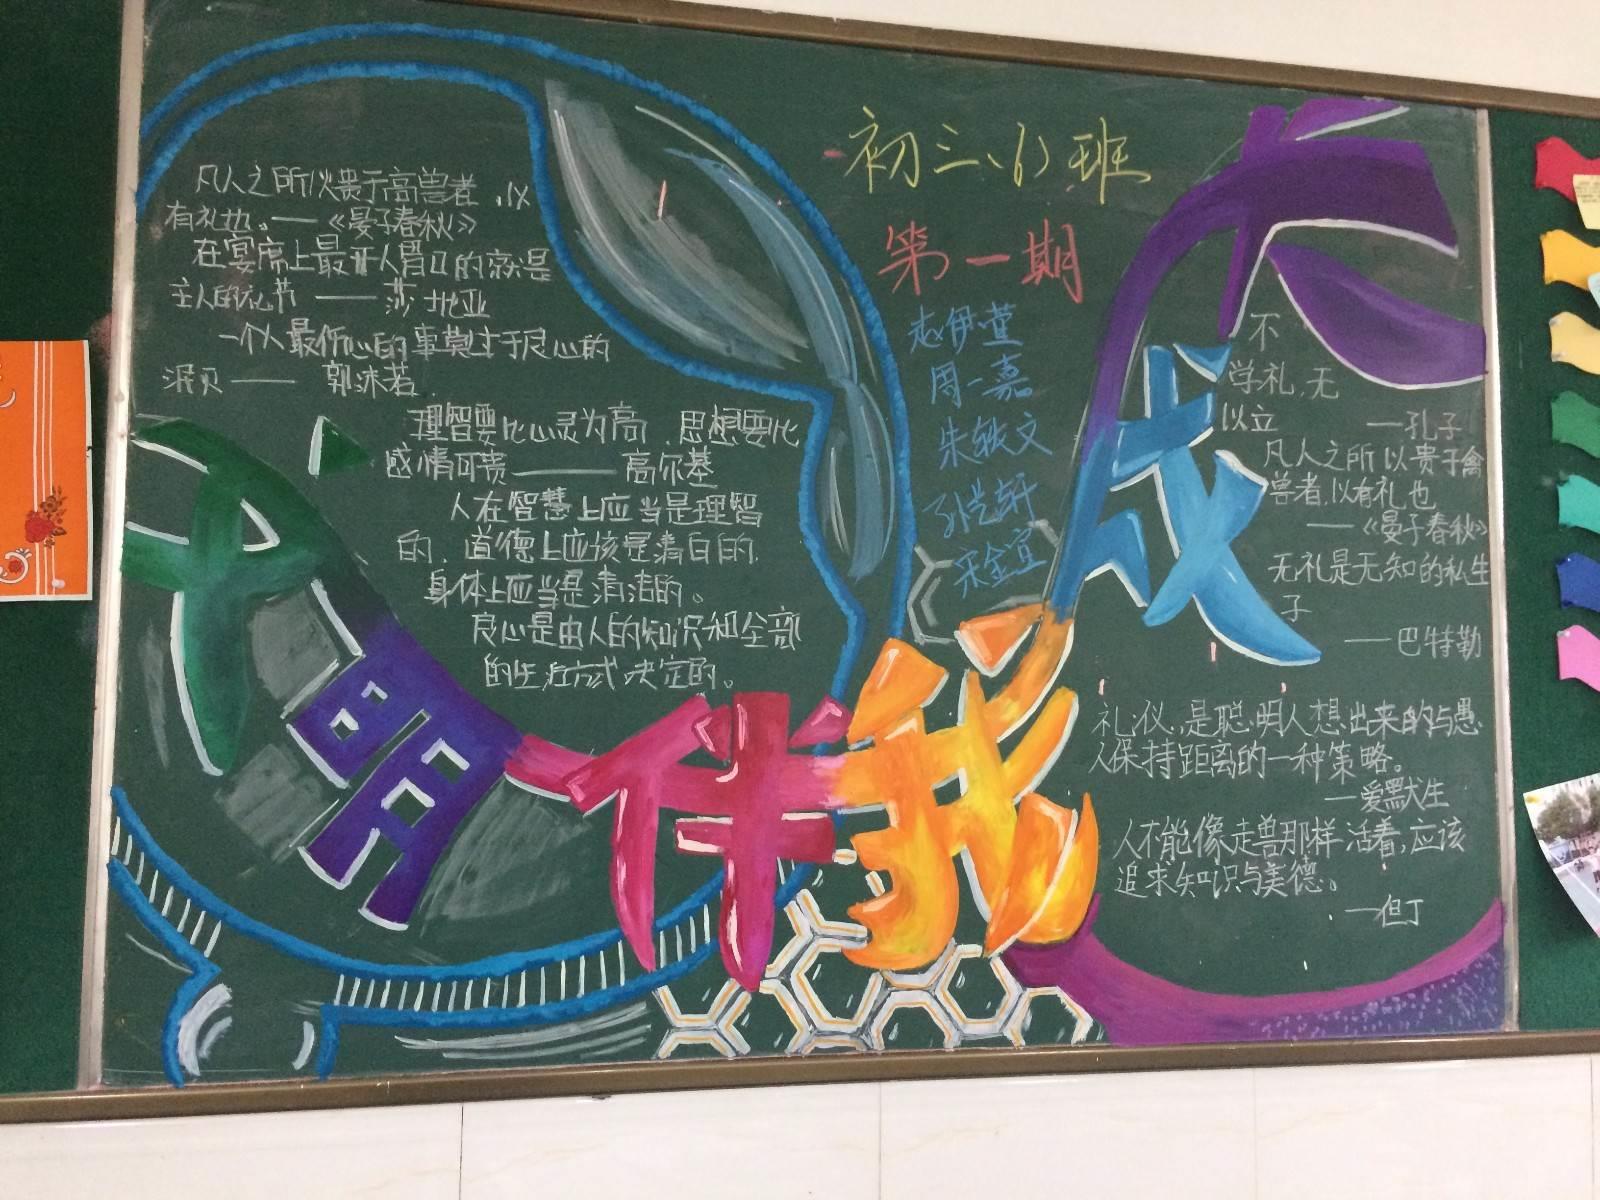 凡人之所以贵于高兽者,以
有礼也。——《晏子春秋》
在宴席上最开人胃口的就是
主人的礼节——莎士比亚
一个人最伤心的事莫过于良心的
泯灭——郭沫若
理智要比心灵为高,思想要比
感情可贵———高尔基
人在智慧上应当是理智
的,道德上应该是清白的,
身体上应当是清洁的。
良心是由人的知识和全部
的生活方式决定的。
初三(6)班
第一期
赵伊萱
周一嘉
朱轶文
轩
宋金宣
文明伴我成长
不
学礼,无
以立
—孔子
凡人之所以贵于禽
兽者,以有礼也
—《晏子春秋》
无礼是无知的私生
子
——巴特勒
礼仪,是聪明人想出来的与愚
人保持距离的一种策略。
—爱默生
人不能像走兽那样活着,应该
追求知识与美德。
—但丁